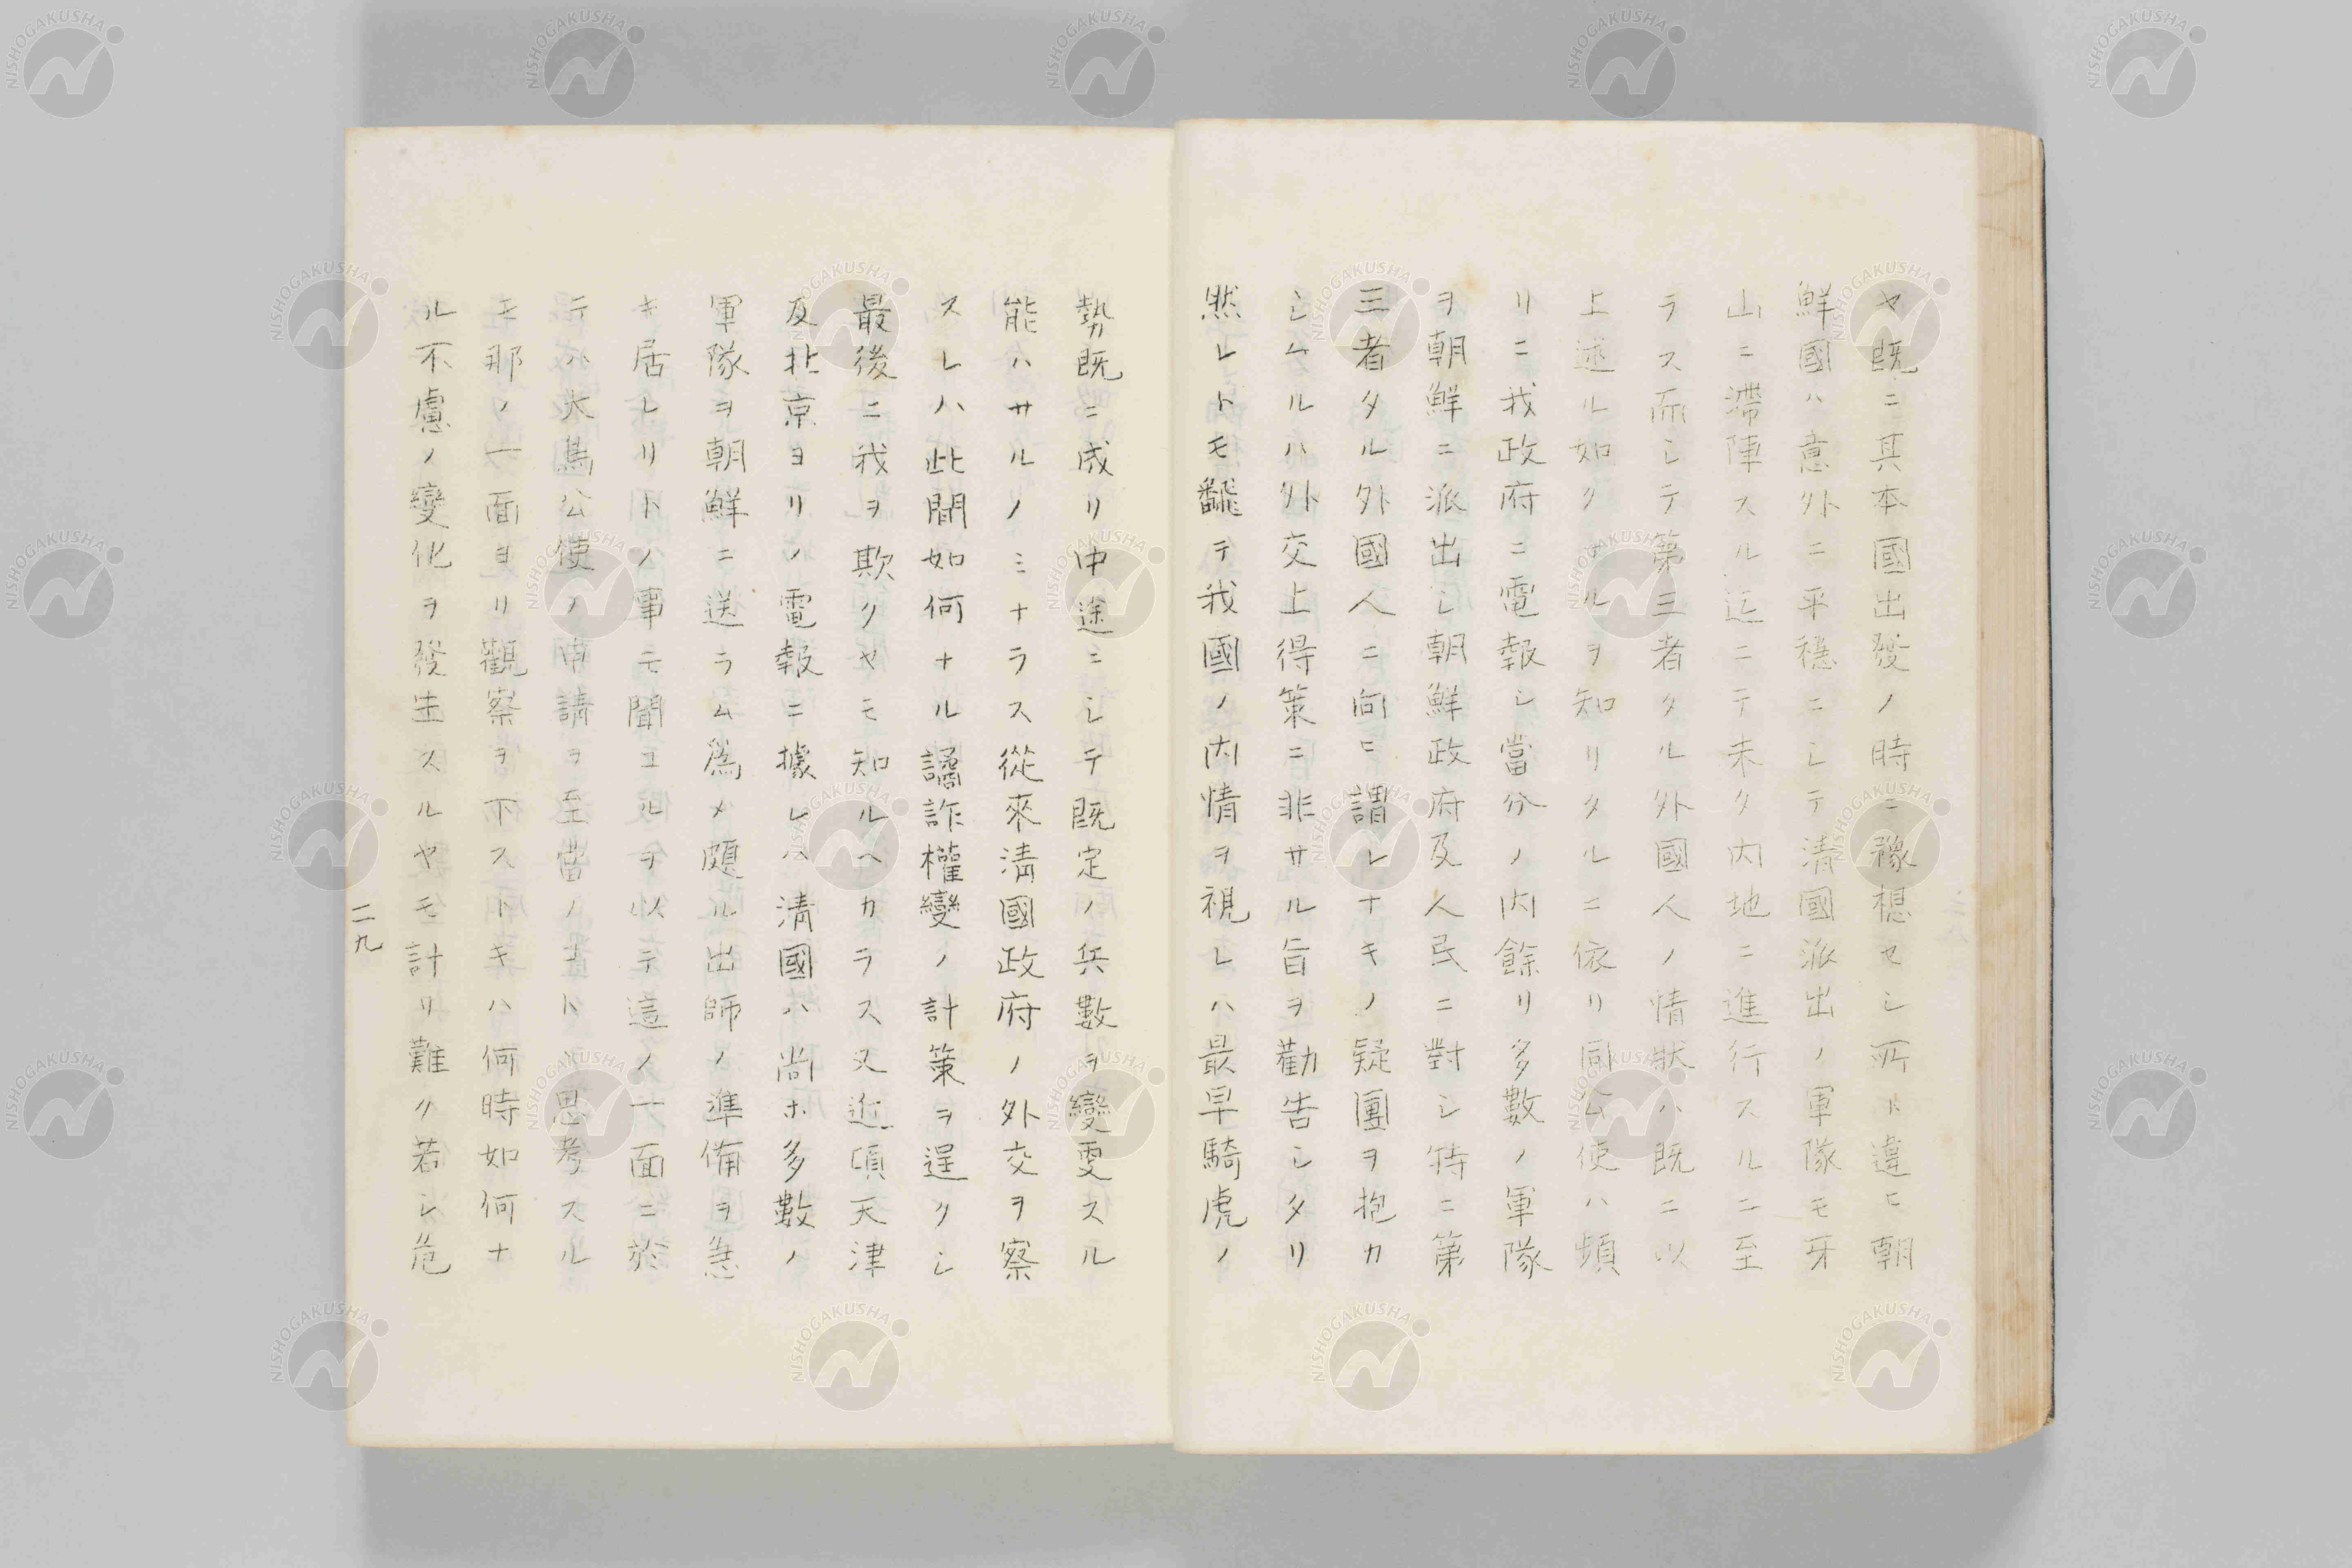 ヤ既ニ其本國出發ノ時ニ豫想セシ所ト違ヒ朝
鮮國ハ意外ニ平穩ニシテ清國派出ノ軍隊モ牙
山ニ滯陣スル迄ニテ未タ内地ニ進行スルニ至
ラス而シテ第三者タル外國人ノ情狀ハ既ニ以
上述ル如クナルヲ知リタルニ依リ同公使ハ頻
リニ我政府ニ電報シ當分ノ内餘リ多數ノ軍隊
ヲ朝鮮ニ派出シ朝鮮政府及人民ニ對シ特ニ第
三者タル外國人ニ向ヒ謂レナキノ疑團ヲ抱カ
シムルハ外交上得策ニ非サル旨ヲ勸告シタリ
然レトモ飜テ我國ノ内情ヲ視レハ最早騎虎ノ
勢既ニ成リ中途ニシテ既定ノ兵數ヲ變更スル
能ハサルノミナラス從來淸國政府ノ外交ヲ察
スレハ此間如何ナル譎詐權變ノ計策ヲ逞クシ
最後ニ我ヲ欺クヤモ知ルヘカラス又近頃天津
及北京ヨリノ電報ニ據レハ淸國ハ尚ホ多數ノ
軍隊ヲ朝鮮ニ送ラム爲メ頗ル出師ノ準備ヲ急
キ居レリトノ事モ聞ユルヲ以テ這ノ一面ニ於
テハ大鳥公使ノ申請ヲ至當ノコトハ思考スル
モ那ノ一面ヨリ觀察ヲ下ストキハ何時如何ナ
ル不慮ノ變化ヲ發生スルヤモ計リ難ク若シ危
二九
NISHOGAKUSHA